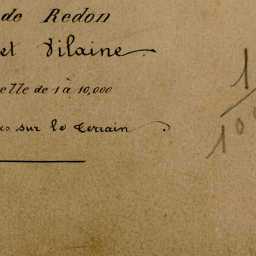 de Redon
et Vilaine
elle de 1 à 10,000
sur le terrain
1
10